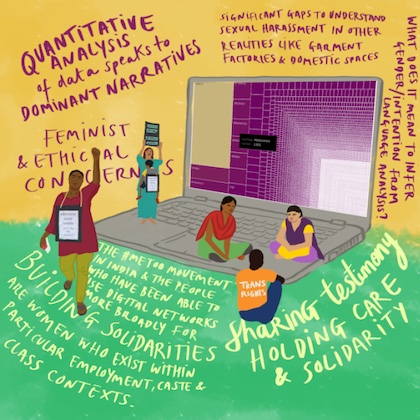 QUANTITATIVE
ANALYSIS
of data speaks to
DOMINANT NARRATIVES
SIGNIFICANT GAPS TO UNDERSTAND
SEXUAL HARASSMENT IN OTHER
REALITIES LIKE GARMENT
FACTORIES & DOMESTIC SPACES
WHAT DOES IT MEAN TO INFER
GENDER/INTENTION FROM
LANGUAGE ANALYSIS?
FEMINIST
& ETHICAL
CONCERNS
THE #METOO MOVEMENT
IN INDIA & THE PEOPLE
WHO HAVE BEEN ABLE TO
USE DIGITAL NETWORKS
MORE BROADLY FOR
BUILDING SOLIDARITIES
ARE WOMEN WHO EXIST WITHIN
PARTICULAR EMPLOYMENT, CASTE &
CLASS CONTEXTS.
TRANS
RIGHTS
Sharing testimony
HOLDING CARE
& SOLIDARITY